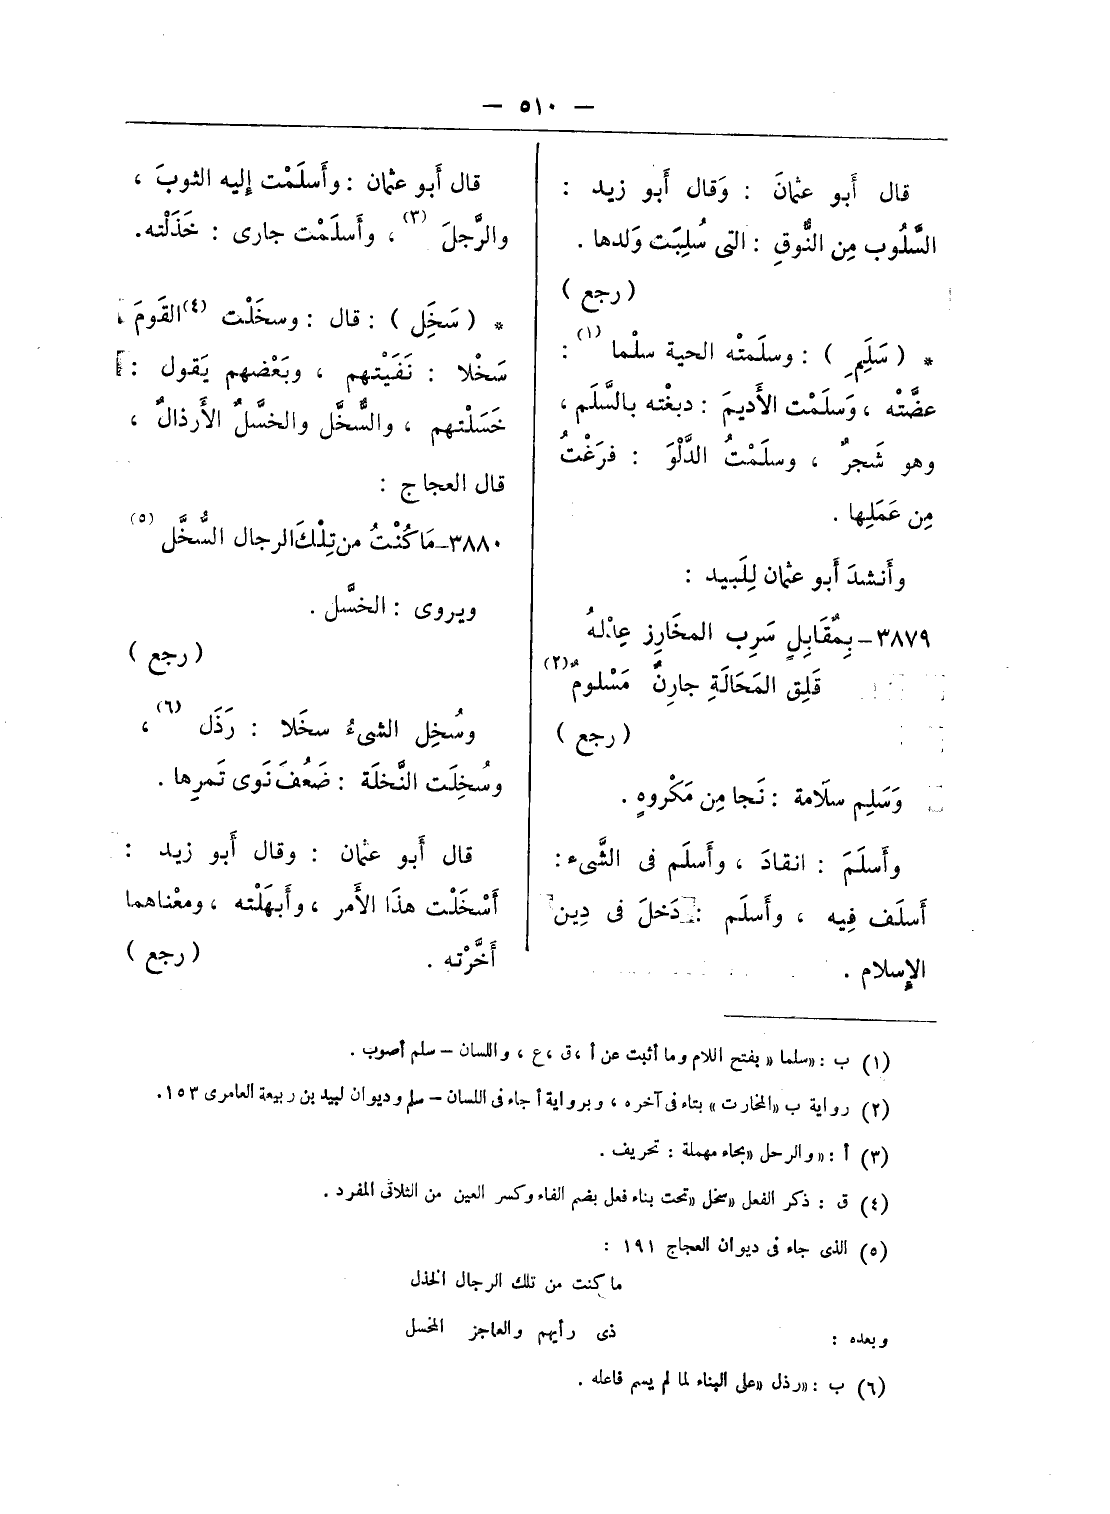 — ٥١٠ —
قال أَبو عثمانَ : وَقال أَبو زيد :
السَّلُوب مِن النُّوقِ : التى سُلِبَت وَلدها .
( رجع )
* ( سَلَِم ) : وسلَمتْه الحية سلْما (١) :
عضَّتْه ، وَسلَمْت الأَديمَ : دبغْته بالسَّلَم ،
وهو شَجرٌ ، وسلَمْتُ الدَّلْوَ : فرَغْتُ
مِن عَمَلِها .
وأَنشدَ أَبو عثمان لِلَبيد :
٣٨٧٩ـ بِمُقَابِلٍ سَرِب المخَارِزِ عِدْلهُ
قَلِق المَحَالَةِ جارِنٌ مَسْلومٌ (٢)
( رجع )
وَسَلِم سلَامة : نَجا مِن مَكْروهٍ .
وأَسلَمَ : انقادَ ، وأَسلَم فى الشَّىء :
أَسلَف فِيه ، وأَسلَم : دَخلَ فى دِين
الإِسلام .
قال أَبو عثمان : وأَسلَمْت إِليه الثوبَ ،
والرَّجلَ (٣) ، وأَسلَمْت جارى : خَذَلْته.
* ( سَخَِل ) : قال : وسخَلْت (٤) القَومَ ،
سَخْلا : نَفَيْتهم ، وبَعْضهم يَقول :
خَسَلْتهم ، والسُّخَّل والخسَّلُ الأَرذالُ ،
قال العجاج :
٣٨٨٠ـ مَا كُنْتُ من تِلْكَ الرجال السُّخَّل (٥)
ويروى : الخسَّل .
( رجع )
وسُخِل الشىءُ سخَلا : رَذَل (٦) ،
وسُخِلَت النَّخلَة : ضَعُفَ نَوى تَمرِها .
قال أَبو عثمان : وقال أَبو زيد :
أَسْخَلْت هذَا الأَمر ، وأَبهَلْته ، ومعْناهما
أَخَّرْته .
( رجع )
(١) ب : «سلما» بفتح اللام وما أثبت عن أ ، ق ، ع ، واللسان – سلم أصوب .
(٢) رواية ب «المخارت» بتاء فى آخره ، وبرواية أ جاء فى اللسان – سلم وديوان لبيد بن ربيعة العامرى ١٥٣.
(٣) أ : «والرحل» بحاء مهملة : تحريف .
(٤) ق : ذكر الفعل «سخل» تحت بناء فعل بضم الفاء وكسر العين من الثلاثى المفرد .
(٥) الذى جاء فى ديوان العجاج ١٩١ :
ما كنت من تلك الرجال الخذل
وبعده : ذى رأيهم والعاجز المخسل
(٦) ب : «رذل» على البناء لما لم يسم فاعله .